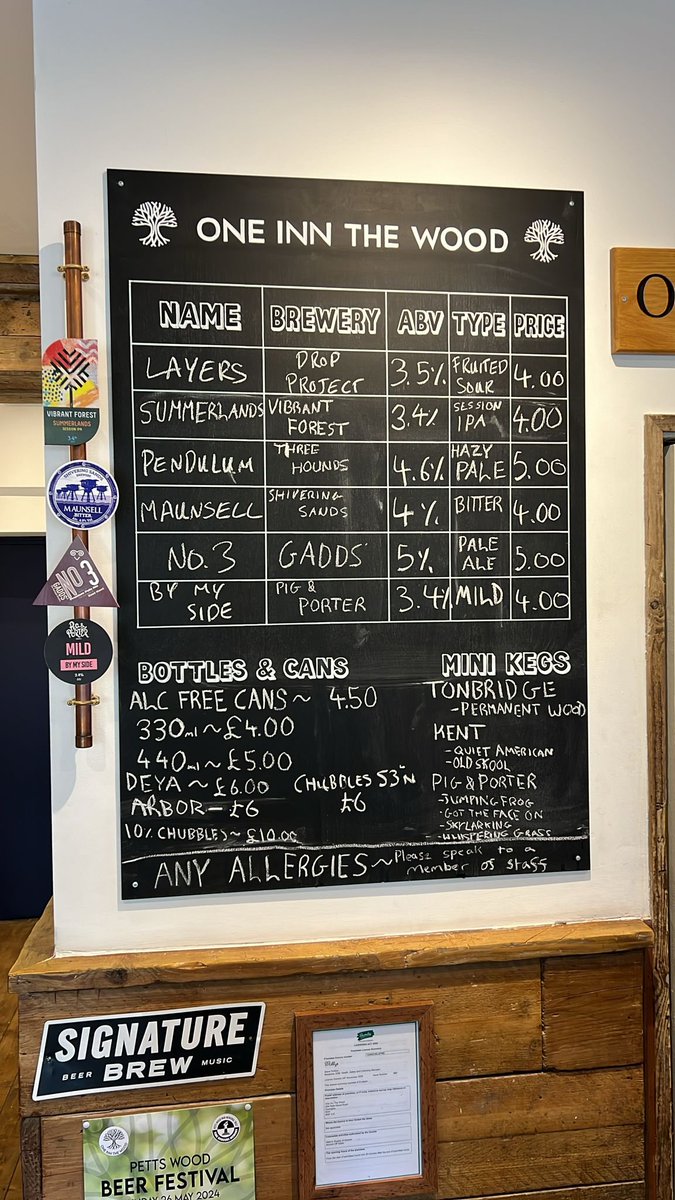 ONE INN THE WOOD
NAME BREWERY ABV TYPE PRICE
LAYERS DROP PROJECT 3.5% FRUITED SOUR 4.00
SUMMERLANDS VIBRANT FOREST 3.4% SESSION IPA 4.00
PENDULUM THREE HOUNDS 4.6% HAZY PALE 5.00
MAUNSELL SHIVERING SANDS 4% BITTER 4.00
NO.3 GADDS' 5% PALE ALE 5.00
BY MY SIDE PIG & PORTER 3.4% MILD 4.00
BOTTLES & CANS
ALC FREE CANS ~ 4.50
330ml ~ £4.00
440ml ~ £5.00
DEYA ~ £6.00
ARBOR - £6
10% CHUBBLES ~ £10.00
CHUBBLES 53°N
£6
MINI KEGS
TONBRIDGE
- PERMANENT WOOD
KENT
- QUIET AMERICAN
- OLD SKOOL
PIG & PORTER
- JUMPING FROG
- GOT THE FACE ON
- SKYLARKING
- WHISPERING GRASS
ANY ALLERGIES ~ Please speak to a
member of staff
VIBRANT FOREST
SUMMERLANDS
SESSION IPA
3.4%
SHIVERING SANDS
MAUNSELL
BITTER
GADDS'
NO3
PIG & PORTER
MILD
BY MY SIDE
3.4%
O
SIGNATURE
BEER BREW MUSIC
PETTS WOOD
BEER FESTIVAL
26 MAY 2024